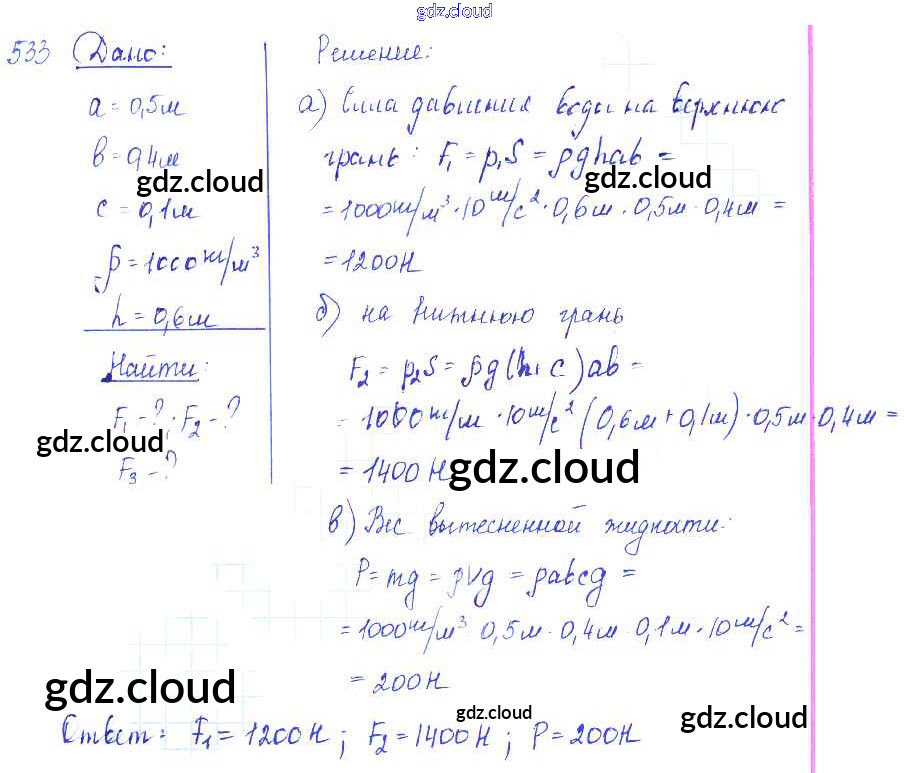 gdz.cloud
533 Дано:
a = 0,5м
b = 0,4м
gdz.cloud
c = 0,1м
ρ = 1000 кг/м³
h = 0,6м
Найти:
F₁ - ?; F₂ - ?
gdz.cloud
F₃ - ?
Решение:
а) Сила давления воды на верхнюю
грань: F₁ = p₁S = ρghab =
gdz.cloud
= 1000 кг/м³ · 10 м/с² · 0,6м · 0,5м · 0,4м =
= 1200Н
б) на нижнюю грань
F₂ = p₂S = ρg(h+c)ab =
= 1000 кг/м · 10 м/с² (0,6м + 0,1м) · 0,5м · 0,4м =
= 1400 Н
gdz.cloud
в) Вес вытесненной жидкости:
P = mg = ρVg = ρabcg =
= 1000 кг/м³ 0,5м · 0,4м · 0,1м · 10 м/с² =
= 200Н
gdz.cloud
gdz.cloud
gdz.cloud
Ответ: F₁ = 1200Н; F₂ = 1400Н; P = 200Н